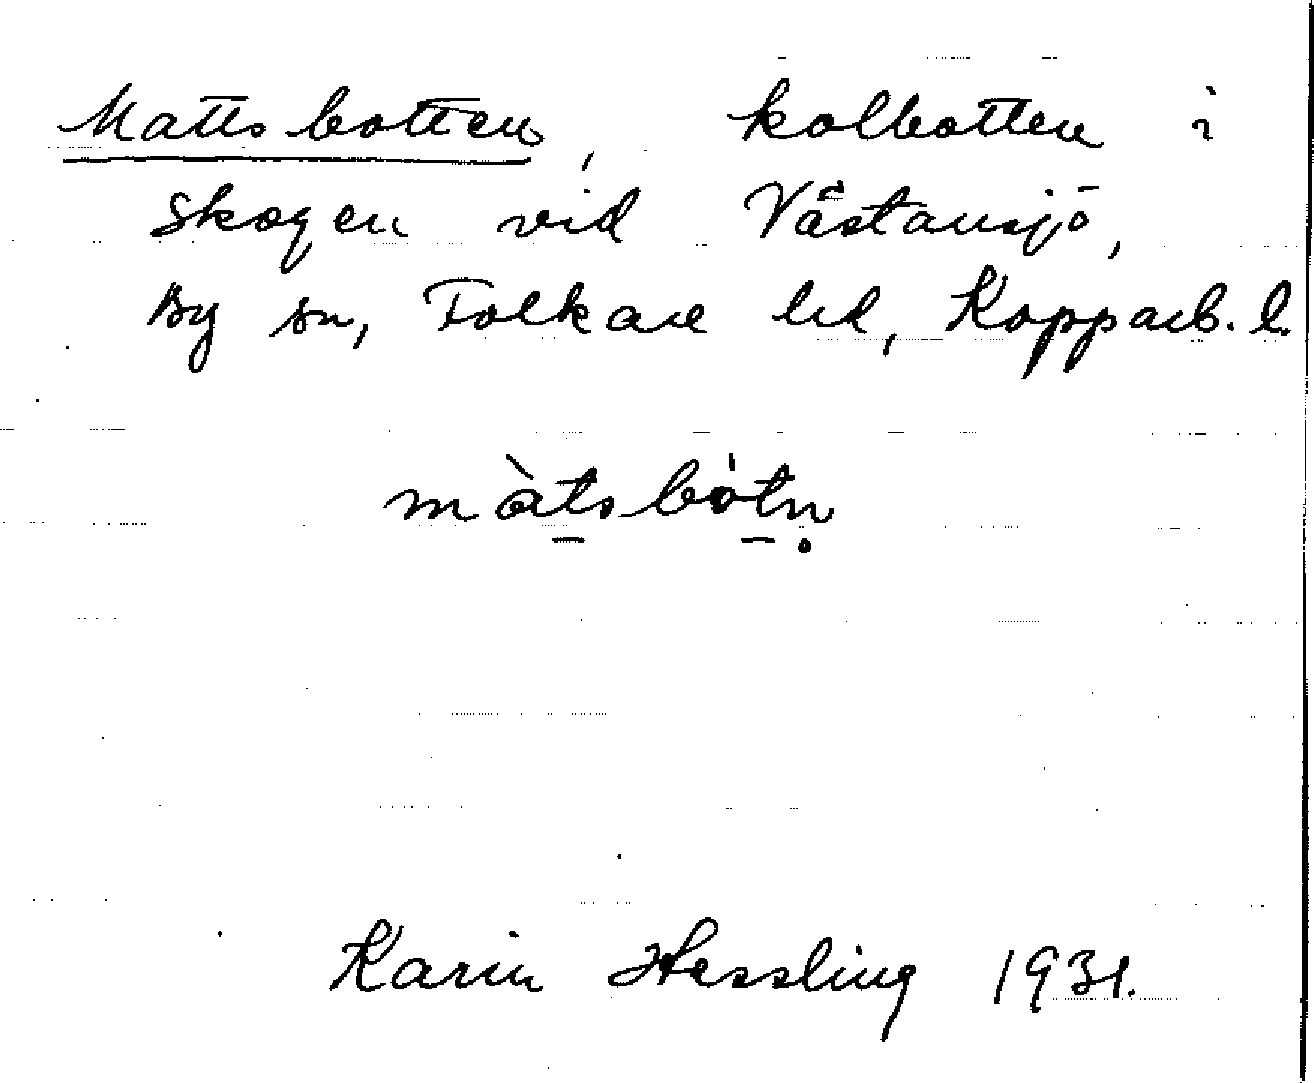 Matts botten, kolbotten i
skogen vid Västansjö,
By sn, Folkare hd, Kopparb. l.
màt̲sbòt̲ṇ
Karin Hessling 1931.